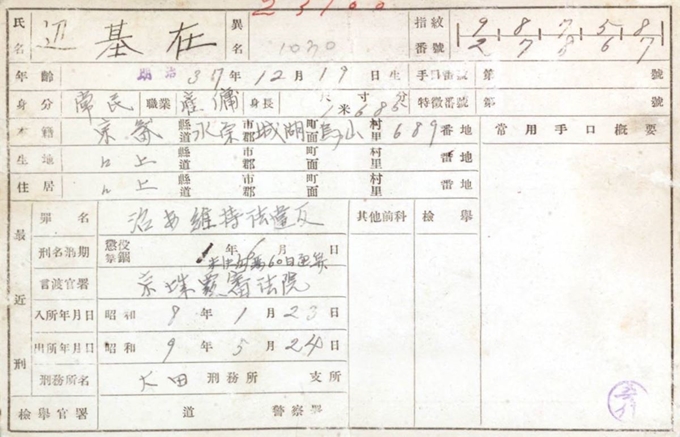 氏名 邊基在 異名 1030 指紋番號 9 8 7 5 8 2 7 8 6 7
年齡 明治37年12月19日生 手口番號 第 號
身分 常民 職業 雇傭 身長 尺寸分 1米685 特徵番號 第 號
本籍 京畿 縣道 水原 市郡 城湖 町面 烏山 村里 689 番地 常用手口槪要
生地 仝上 縣道 市郡 町面 村里 番地
住居 仝上 縣道 市郡 町面 村里 番地
最近刑
罪名 治安維持法違反 其他前科 檢擧
刑名刑期 懲役 禁錮 1年 月 日
60日
言渡官署 京城覆審法院
入所年月日 昭和8年1月23日
出所年月日 昭和9年5月24日
刑務所名 大田 刑務所 支所
檢擧官署 道 警察署